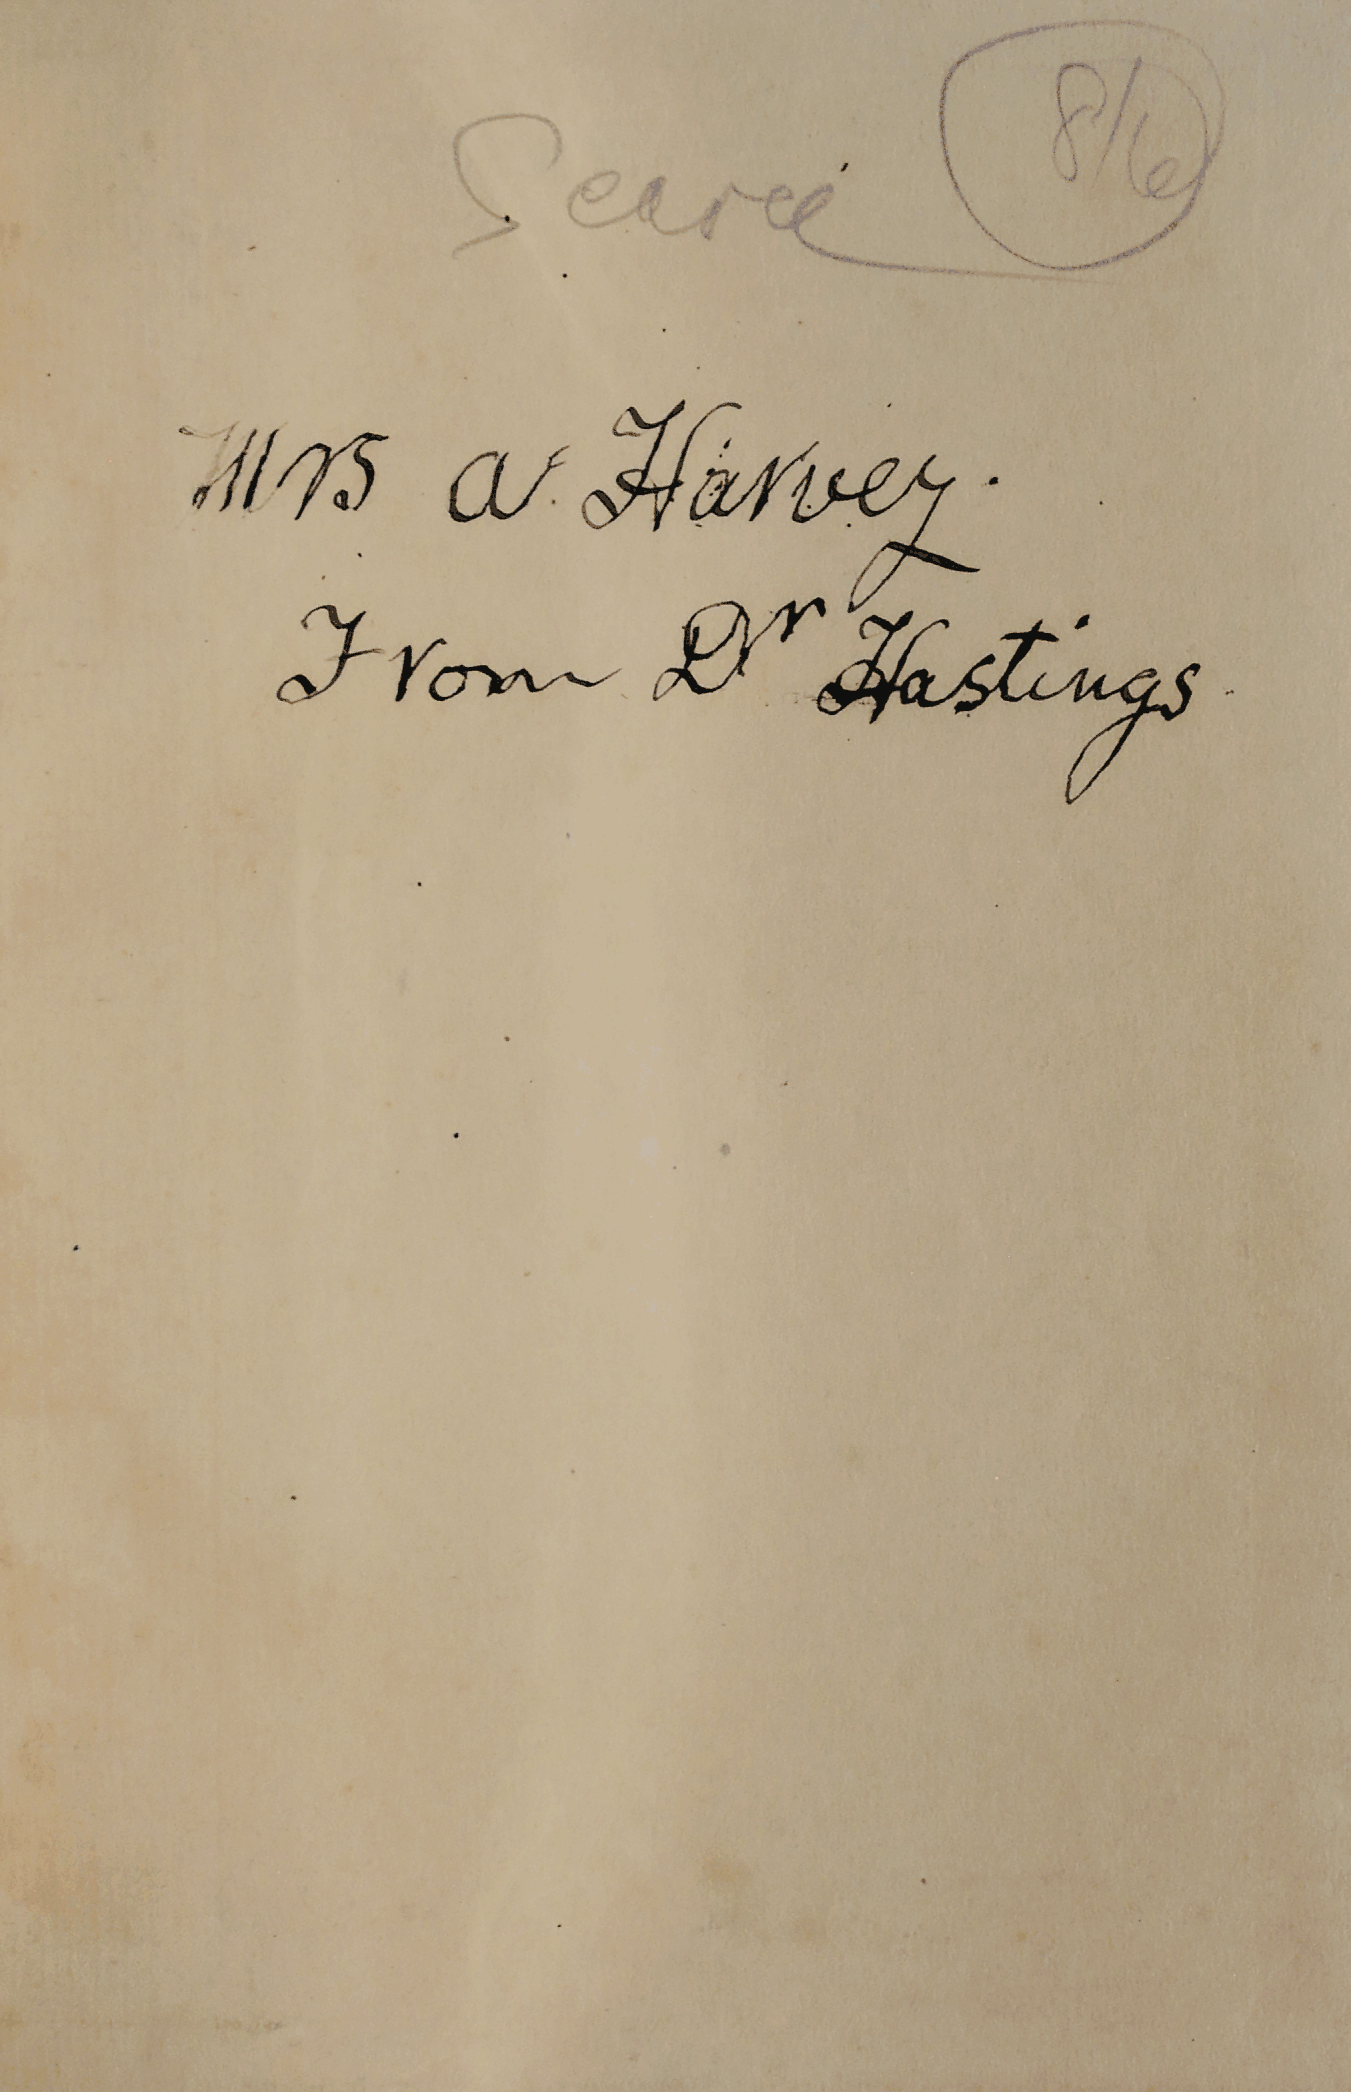 Scarce 8/6
Mrs A. Harvey.
From Dr Hastings